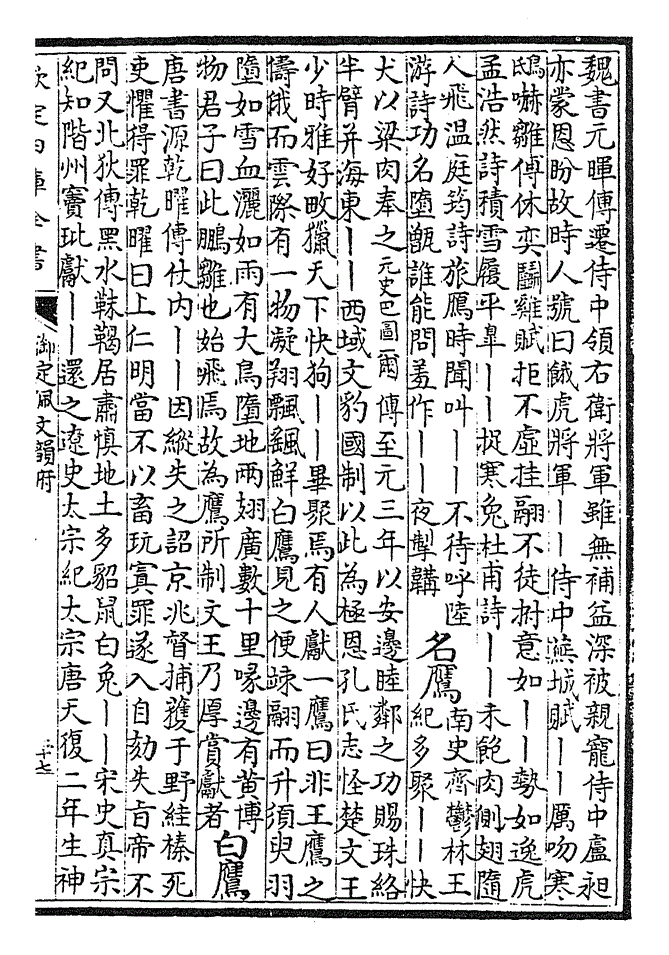 魏書元暉傳遷侍中領右衛將軍雖無補益深被親寵侍中盧昶
亦蒙恩盻故時人號曰餓虎將軍——侍中蕪城賦——厲吻寒
鴟嚇雛傅休奕鬭雞賦拒不虛挂翮不徒拊意如——勢如逸虎
孟浩然詩積雪履平臯——捉寒兔杜甫詩——未飽肉側翅隨
人飛温庭筠詩旅鴈時聞叫——不待呼陸
游詩功名墮甑誰能問羞作——夜掣韝
名鷹
南史齊鬱林王
紀多聚——快
犬以粱肉奉之元史巴圖爾傳至元三年以安邊睦鄰之功賜珠絡
半臂并海東——西域文豹國制以此為極恩孔氏志怪楚文王
少時雅好畋獵天下快狗——畢聚焉有人獻一鷹曰非王鷹之
儔俄而雲際有一物凝翔飄颻鮮白鷹見之便竦翮而升須臾羽
墮如雪血灑如雨有大鳥墮地兩翅廣數十里喙邊有黄博
物君子曰此鵬雛也始飛焉故為鷹所制文王乃厚賞獻者
白鷹
唐書源乾曜傳仗内——因縱失之詔京兆督捕獲于野絓榛死
吏懼得罪乾曜曰上仁明當不以畜玩寘罪遂入自劾失旨帝不
問又北狄傳黑水靺鞨居肅慎地土多貂鼠白兔——宋史真宗
紀知階州竇玭獻——還之遼史太宗紀太宗唐天復二年生神
欽定四庫全書
御定佩文韻府